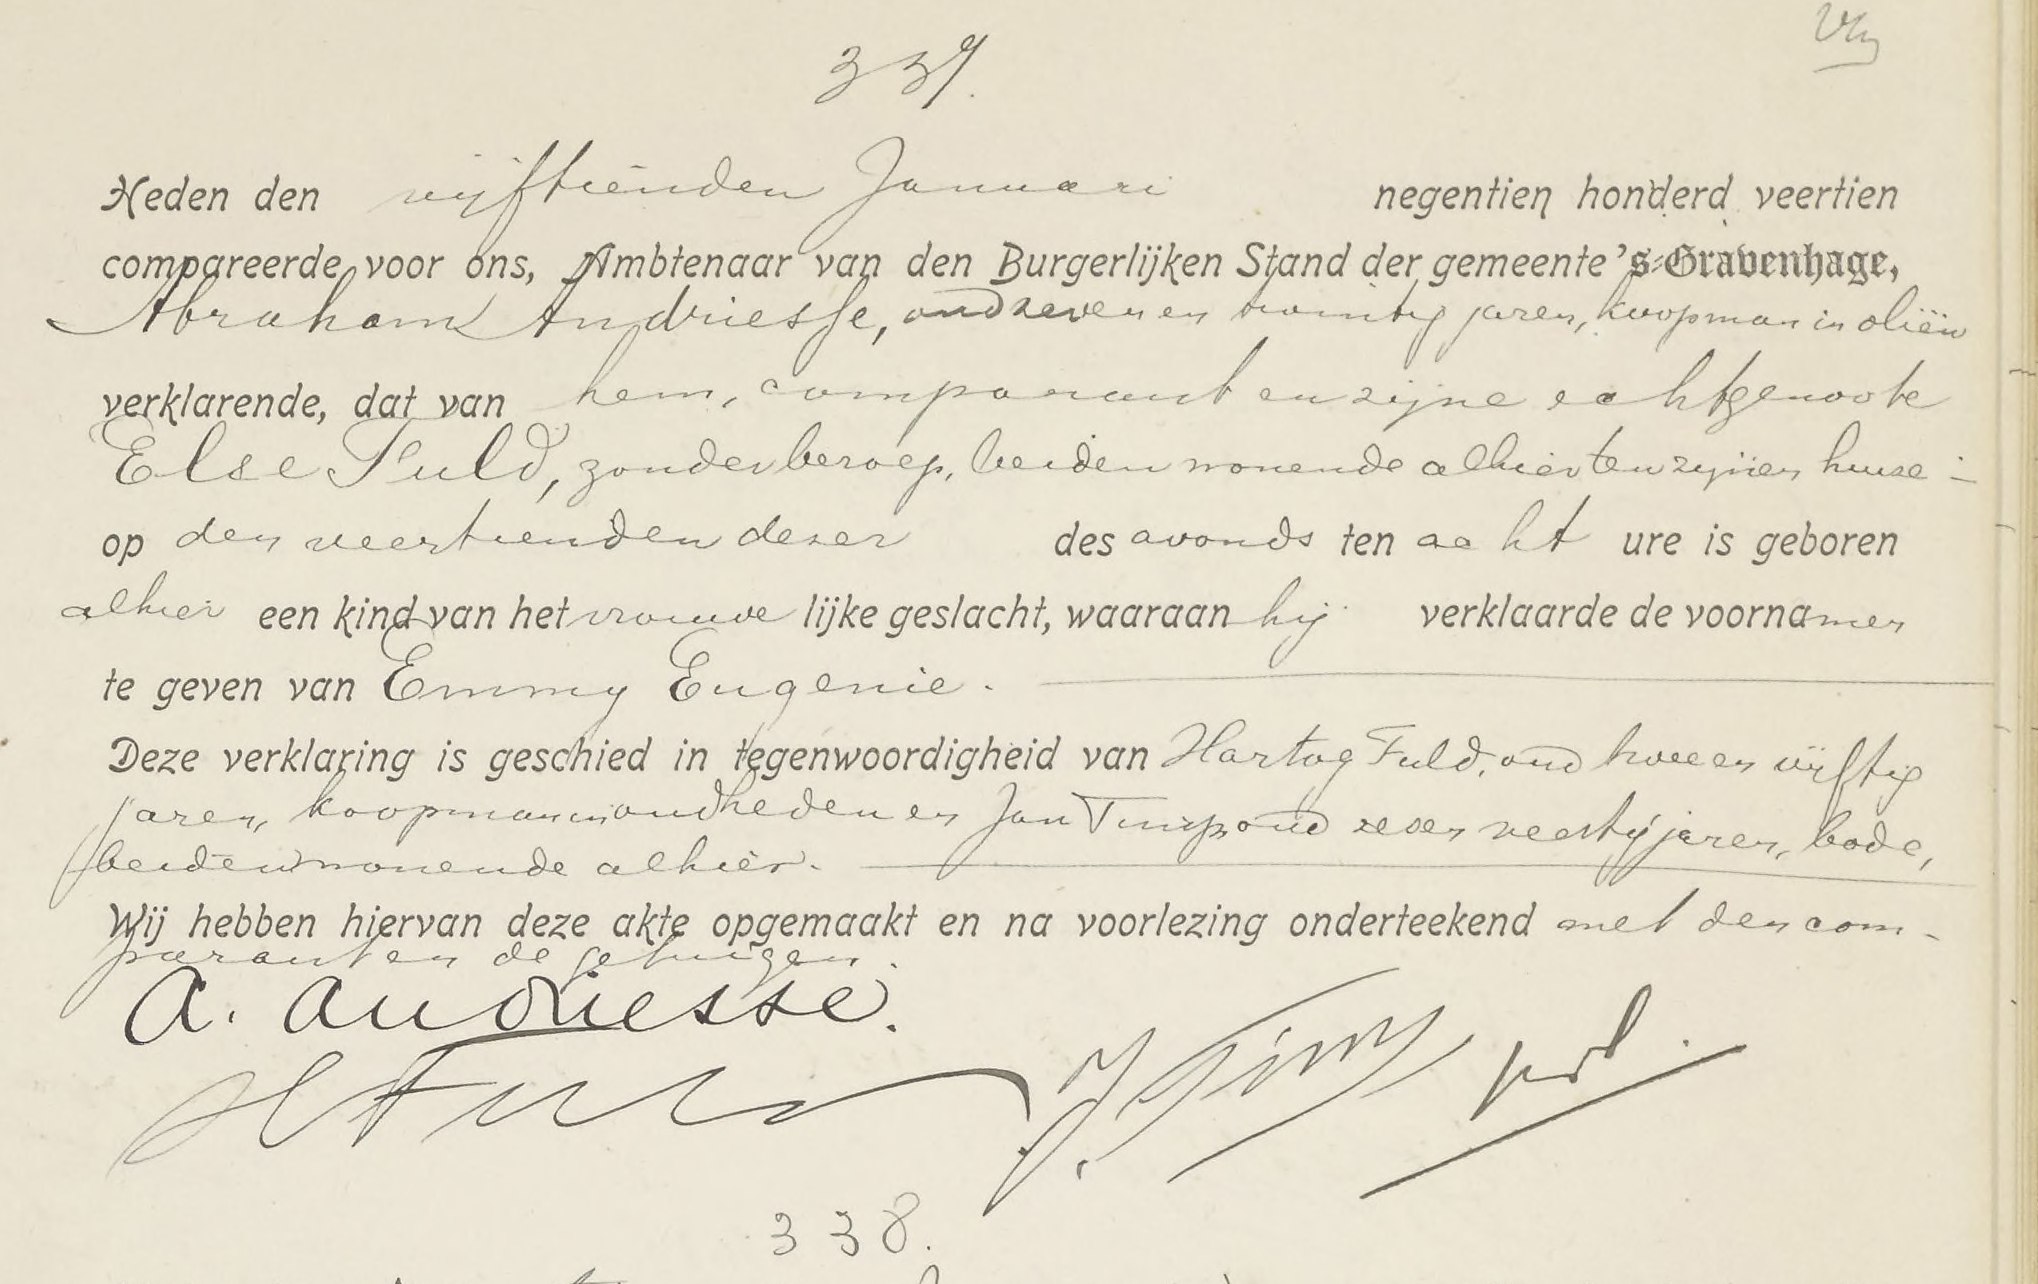 337.
Heden den vijftienden Januari negentien honderd veertien
compareerde voor ons, Ambtenaar van den Burgerlijken Stand der gemeente 's-Gravenhage,
Abraham Andriesse, oud zeven en twintig jaren, koopman in oliën
verklarende, dat van hem, comparant en zijne echtgenoote
Else Fuld, zonder beroep, beiden wonende alhier ten zijnen huize –
op den veertienden dezer des avonds ten acht ure is geboren
alhier een kind van het vrouwe lijke geslacht, waaraan hij verklaarde de voornamen
te geven van Emmy Eugenie.
Deze verklaring is geschied in tegenwoordigheid van Hartog Fuld, oud twee en vijftig
jaren, koopman in oudheden en Jan oud zes en veertig jaren, bode,
beiden wonende alhier.
Wij hebben hiervan deze akte opgemaakt en na voorlezing onderteekend met den com-
parant en de getuigen.
A. Andriesse.
H Fuld
338.